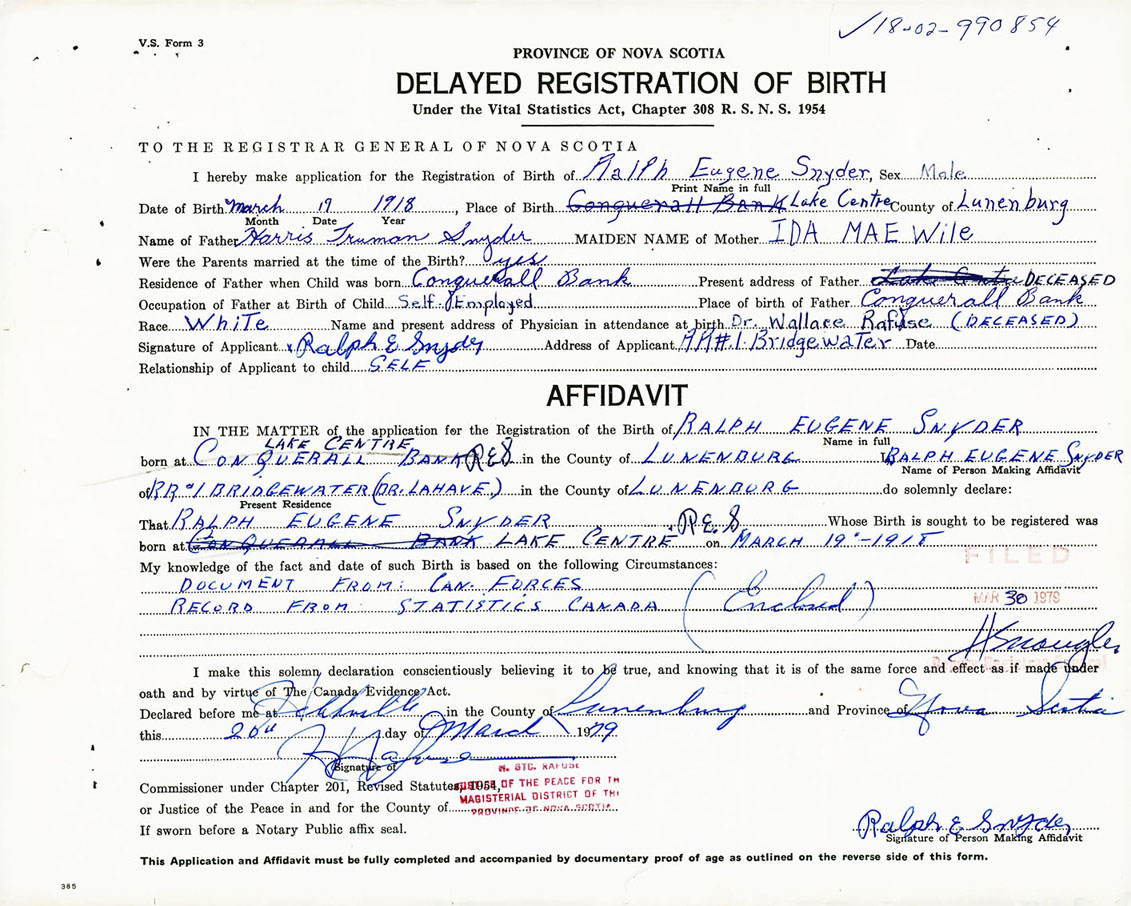 ✓18-02-990854
V.S. Form 3
PROVINCE OF NOVA SCOTIA
DELAYED REGISTRATION OF BIRTH
Under the Vital Statistics Act, Chapter 308 R. S. N. S. 1954
TO THE REGISTRAR GENERAL OF NOVA SCOTIA
I hereby make application for the Registration of Birth of Ralph Eugene Snyder, Sex Male
Print Name in full
Date of Birth March 19 1918, Place of Birth Conquerall Bank Lake Centre County of Lunenburg
Month Date Year
Name of Father Harris Truman Snyder MAIDEN NAME of Mother IDA MAE Wile
Were the Parents married at the time of the Birth? yes
Residence of Father when Child was born Conquerall Bank Present address of Father Lake Centre DECEASED
Occupation of Father at Birth of Child Self-Employed Place of birth of Father Conquerall Bank
Race White Name and present address of Physician in attendance at birth Dr. Wallace Rafuse (DECEASED)
Signature of Applicant x Ralph E Snyder Address of Applicant RR#1 Bridgewater Date
Relationship of Applicant to child SELF
AFFIDAVIT
IN THE MATTER of the application for the Registration of the Birth of RALPH EUGENE SNYDER
Name in full
LAKE CENTRE
born at CONQUERALL BANK RES in the County of LUNENBURG I, RALPH EUGENE SNYDER
Name of Person Making Affidavit
of RR#1 BRIDGEWATER (DR. LAHAVE) in the County of LUNENBURG do solemnly declare:
Present Residence
That RALPH EUGENE SNYDER R.E.S. Whose Birth is sought to be registered was
born at CONQUERALL BANK LAKE CENTRE on MARCH 19-1918
FILED
My knowledge of the fact and date of such Birth is based on the following Circumstances:
DOCUMENT FROM: CAN. FORCES
RECORD FROM: STATISTICS CANADA (Enclosed)
MAR 30 1979
I make this solemn declaration conscientiously believing it to be true, and knowing that it is of the same force and effect as if made under
oath and by virtue of The Canada Evidence Act.
Declared before me at in the County of Lunenburg and Province of Nova Scotia
this 20th day of March 1979
Signature of
Commissioner under Chapter 201, Revised Statutes, 1954,
or Justice of the Peace in and for the County of
JUSTICE OF THE PEACE FOR TH
MAGISTERIAL DISTRICT OF TH
PROVINCE OF NOVA SCOTIA
If sworn before a Notary Public affix seal.
Ralph E Snyder
Signature of Person Making Affidavit
This Application and Affidavit must be fully completed and accompanied by documentary proof of age as outlined on the reverse side of this form.
385